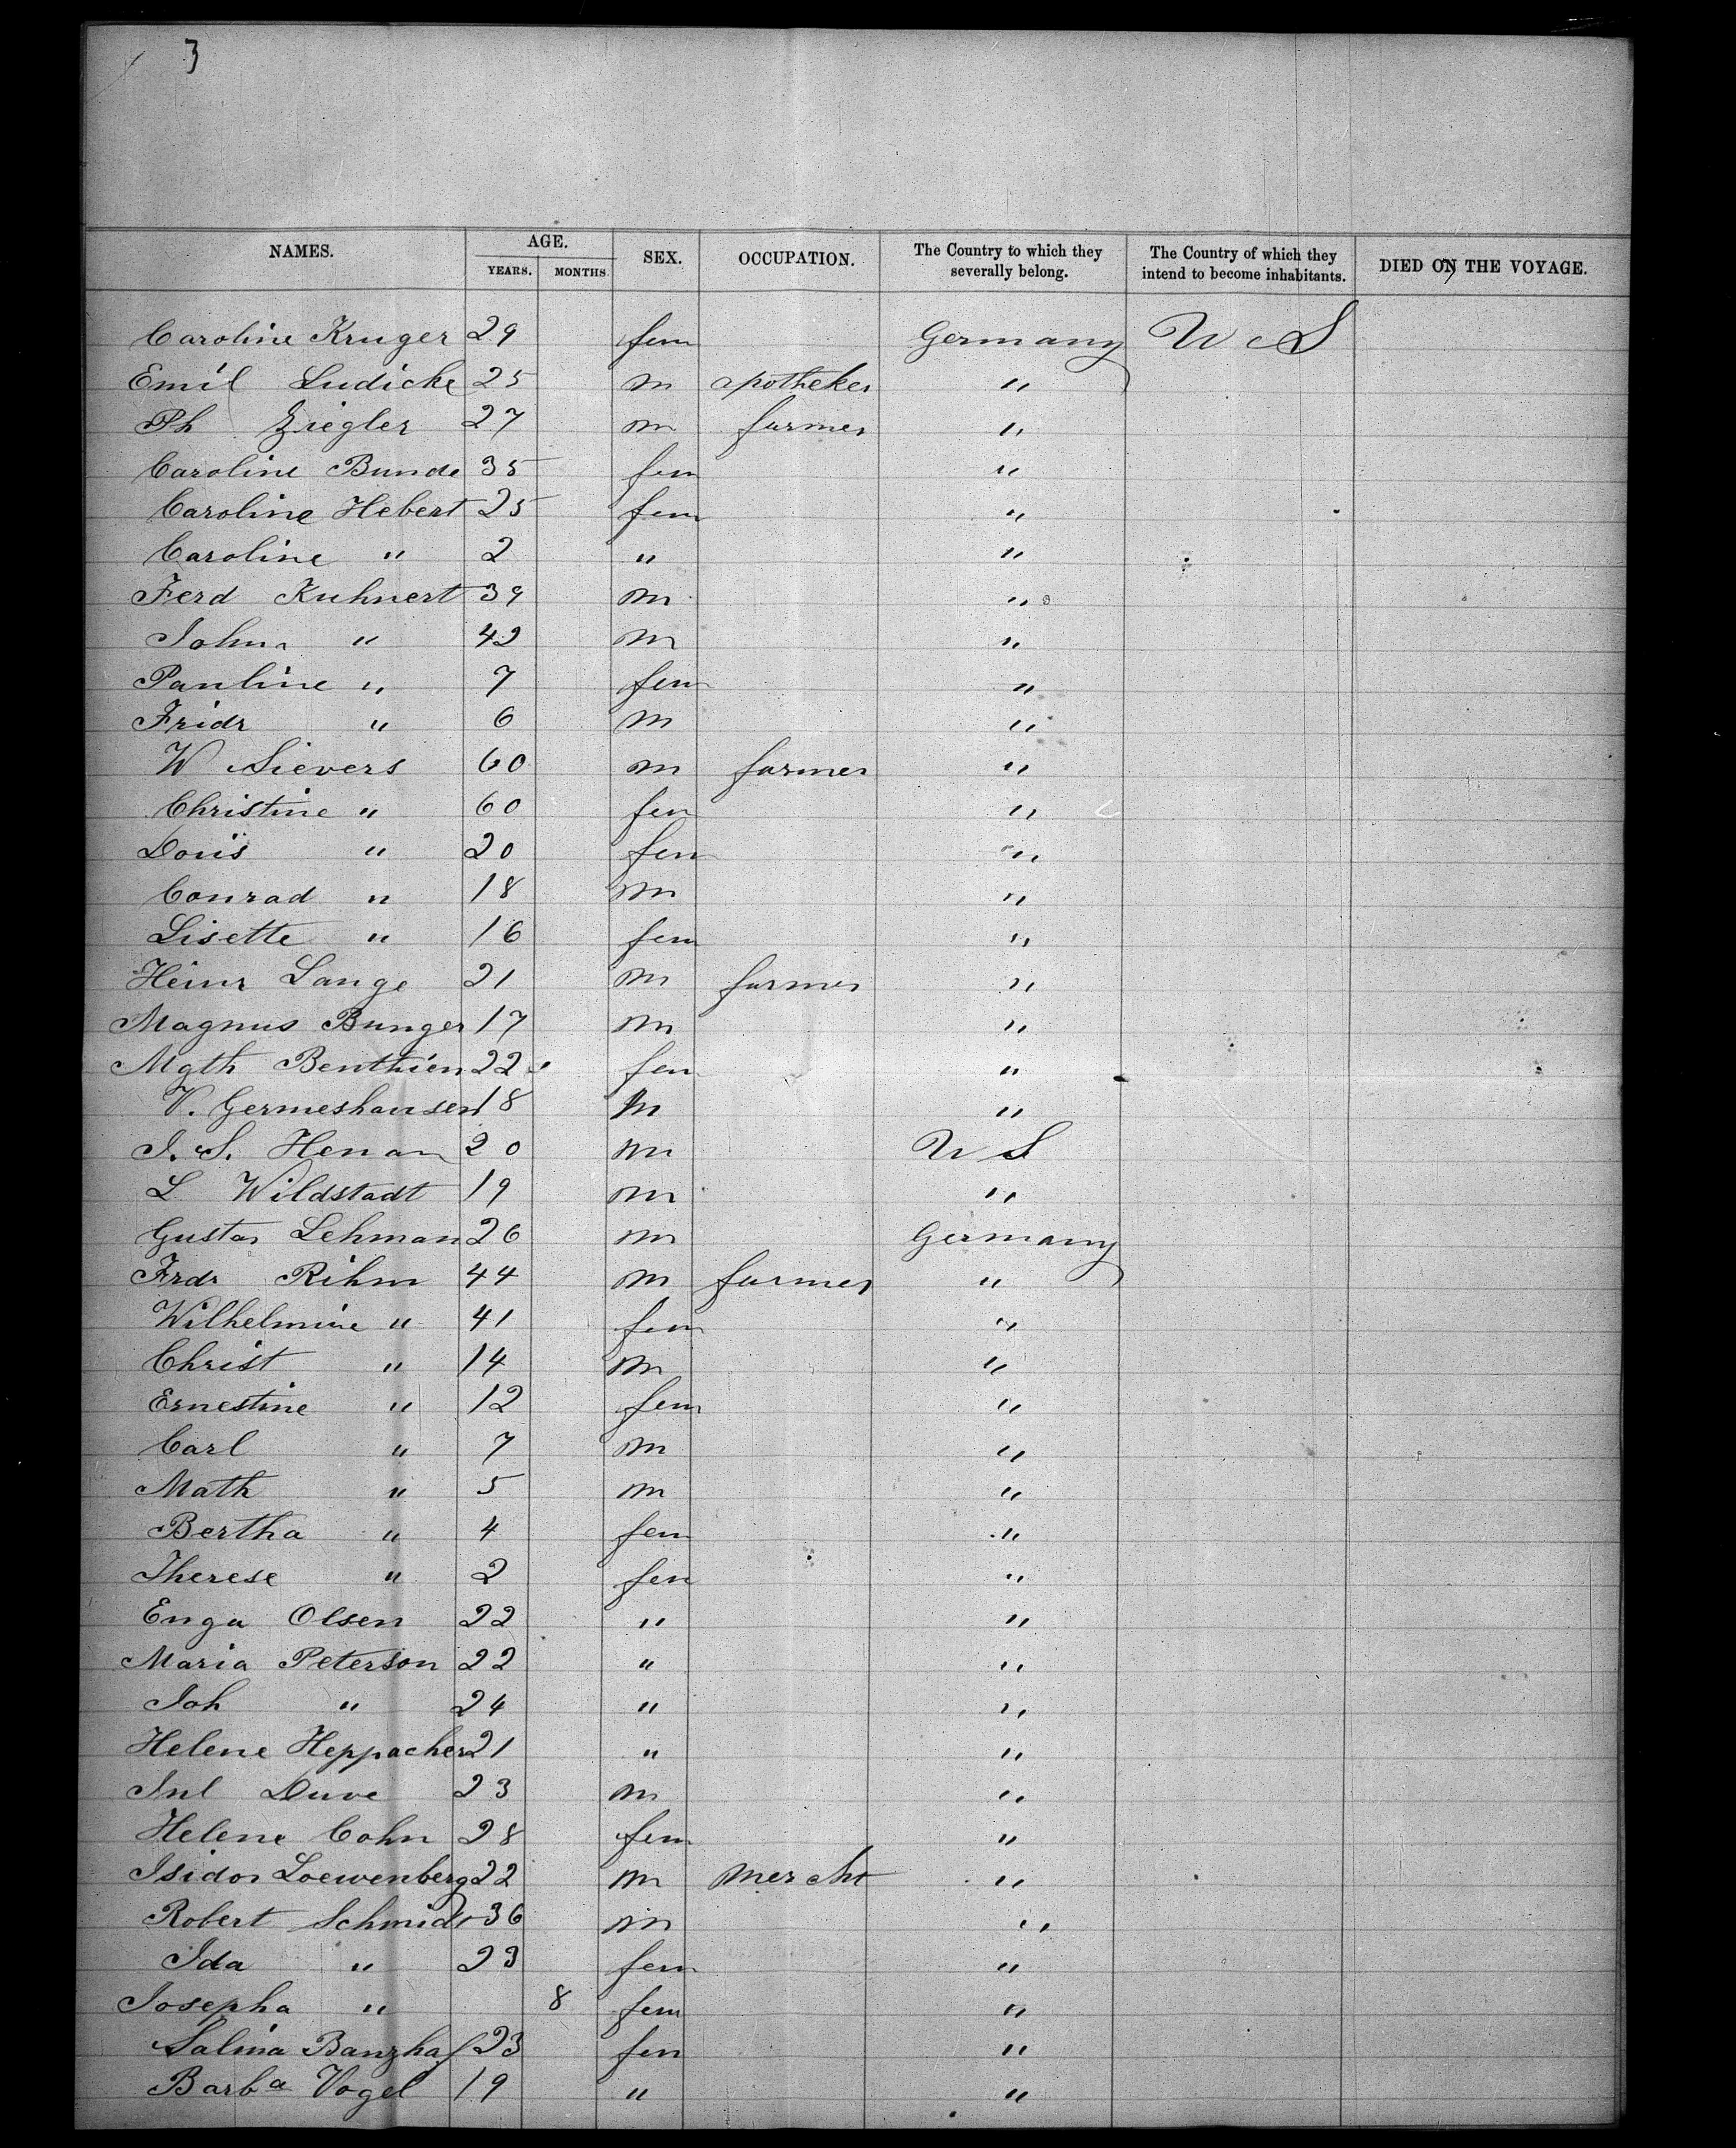 3
NAMES. AGE. YEARS. MONTHS. SEX. OCCUPATION. The Country to which they severally belong. The Country of which they intend to become inhabitants. DIED ON THE VOYAGE.
Caroline Kruger 29 fem Germany U S
Emil Ludicke 25 m apotheker "
Ph Ziegler 27 m farmer "
Caroline Bunde 35 fem "
Caroline Hebert 25 fem "
Caroline " 2 " "
Ferd Kuhnert 39 m "
Johna " 42 m "
Pauline " 7 fem "
Fridr " 6 m "
W Sievers 60 m farmer "
Christine " 60 fem "
Doris " 20 fem "
Conrad " 18 m "
Lisette " 16 fem "
Heinr Lange 21 m farmer "
Magnus Bunger 17 m "
Mgth Benthien 22 fem "
V. Germeshausen 18 m "
J. S. Henan 20 m U S
L Wildstadt 19 m "
Gustav Lehman 26 m Germany
Frdr Rihm 44 m farmer "
Wilhelmine " 41 fem "
Christ " 14 m "
Ernestine " 12 fem "
Carl " 7 m "
Math " 5 m "
Bertha " 4 fem "
Therese " 2 fem "
Enga Olsen 22 " "
Maria Peterson 22 " "
Joh " 24 " "
Helene Heppacher 21 " "
Jul Duve 23 m "
Helene Cohn 28 fem "
Isidor Loewenberg 22 m mercht "
Robert Schmidt 36 m "
Ida " 23 fem "
Josepha " 8 fem "
Salina Banzhaf 23 fem "
Barba Vogel 19 " "